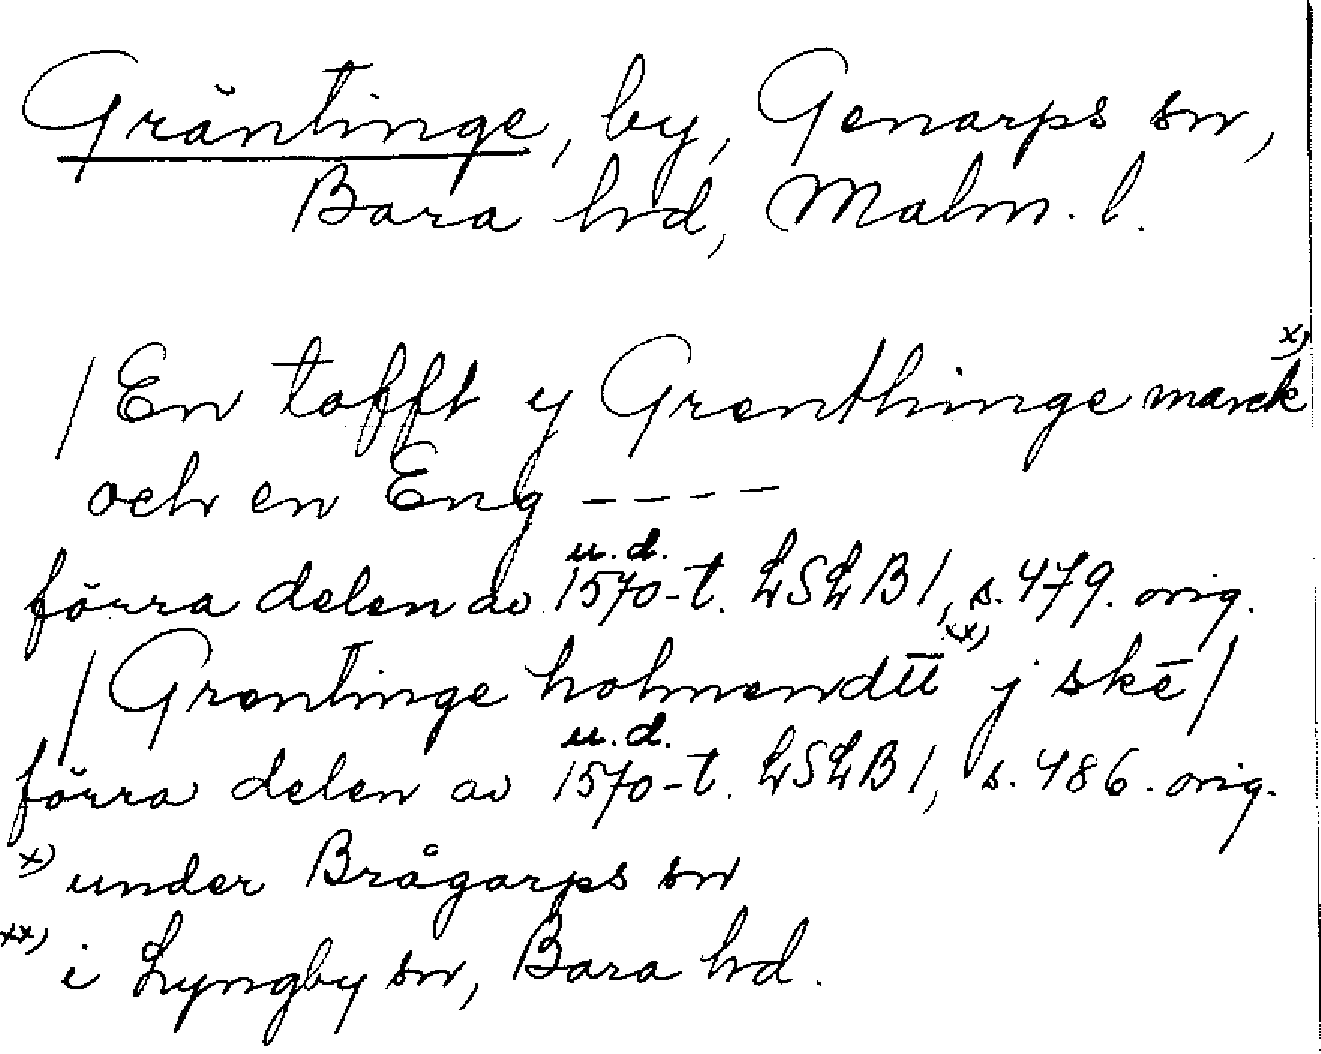 Gräntinge, by, Genarps sn,
Bara hd, Malm. l.
x)
/ En tofft y Grenthinge marck
och en Eng - - - -
u.d.
förra delen av 1570-t. LSLB 1, s. 479. orig.
xx)
/ Grentinge holmend j skē /
u.d.
förra delen av 1570-t. LSLB 1, s. 486. orig.
x) under Brågarps sn
xx) i Lyngby sn, Bara hd.